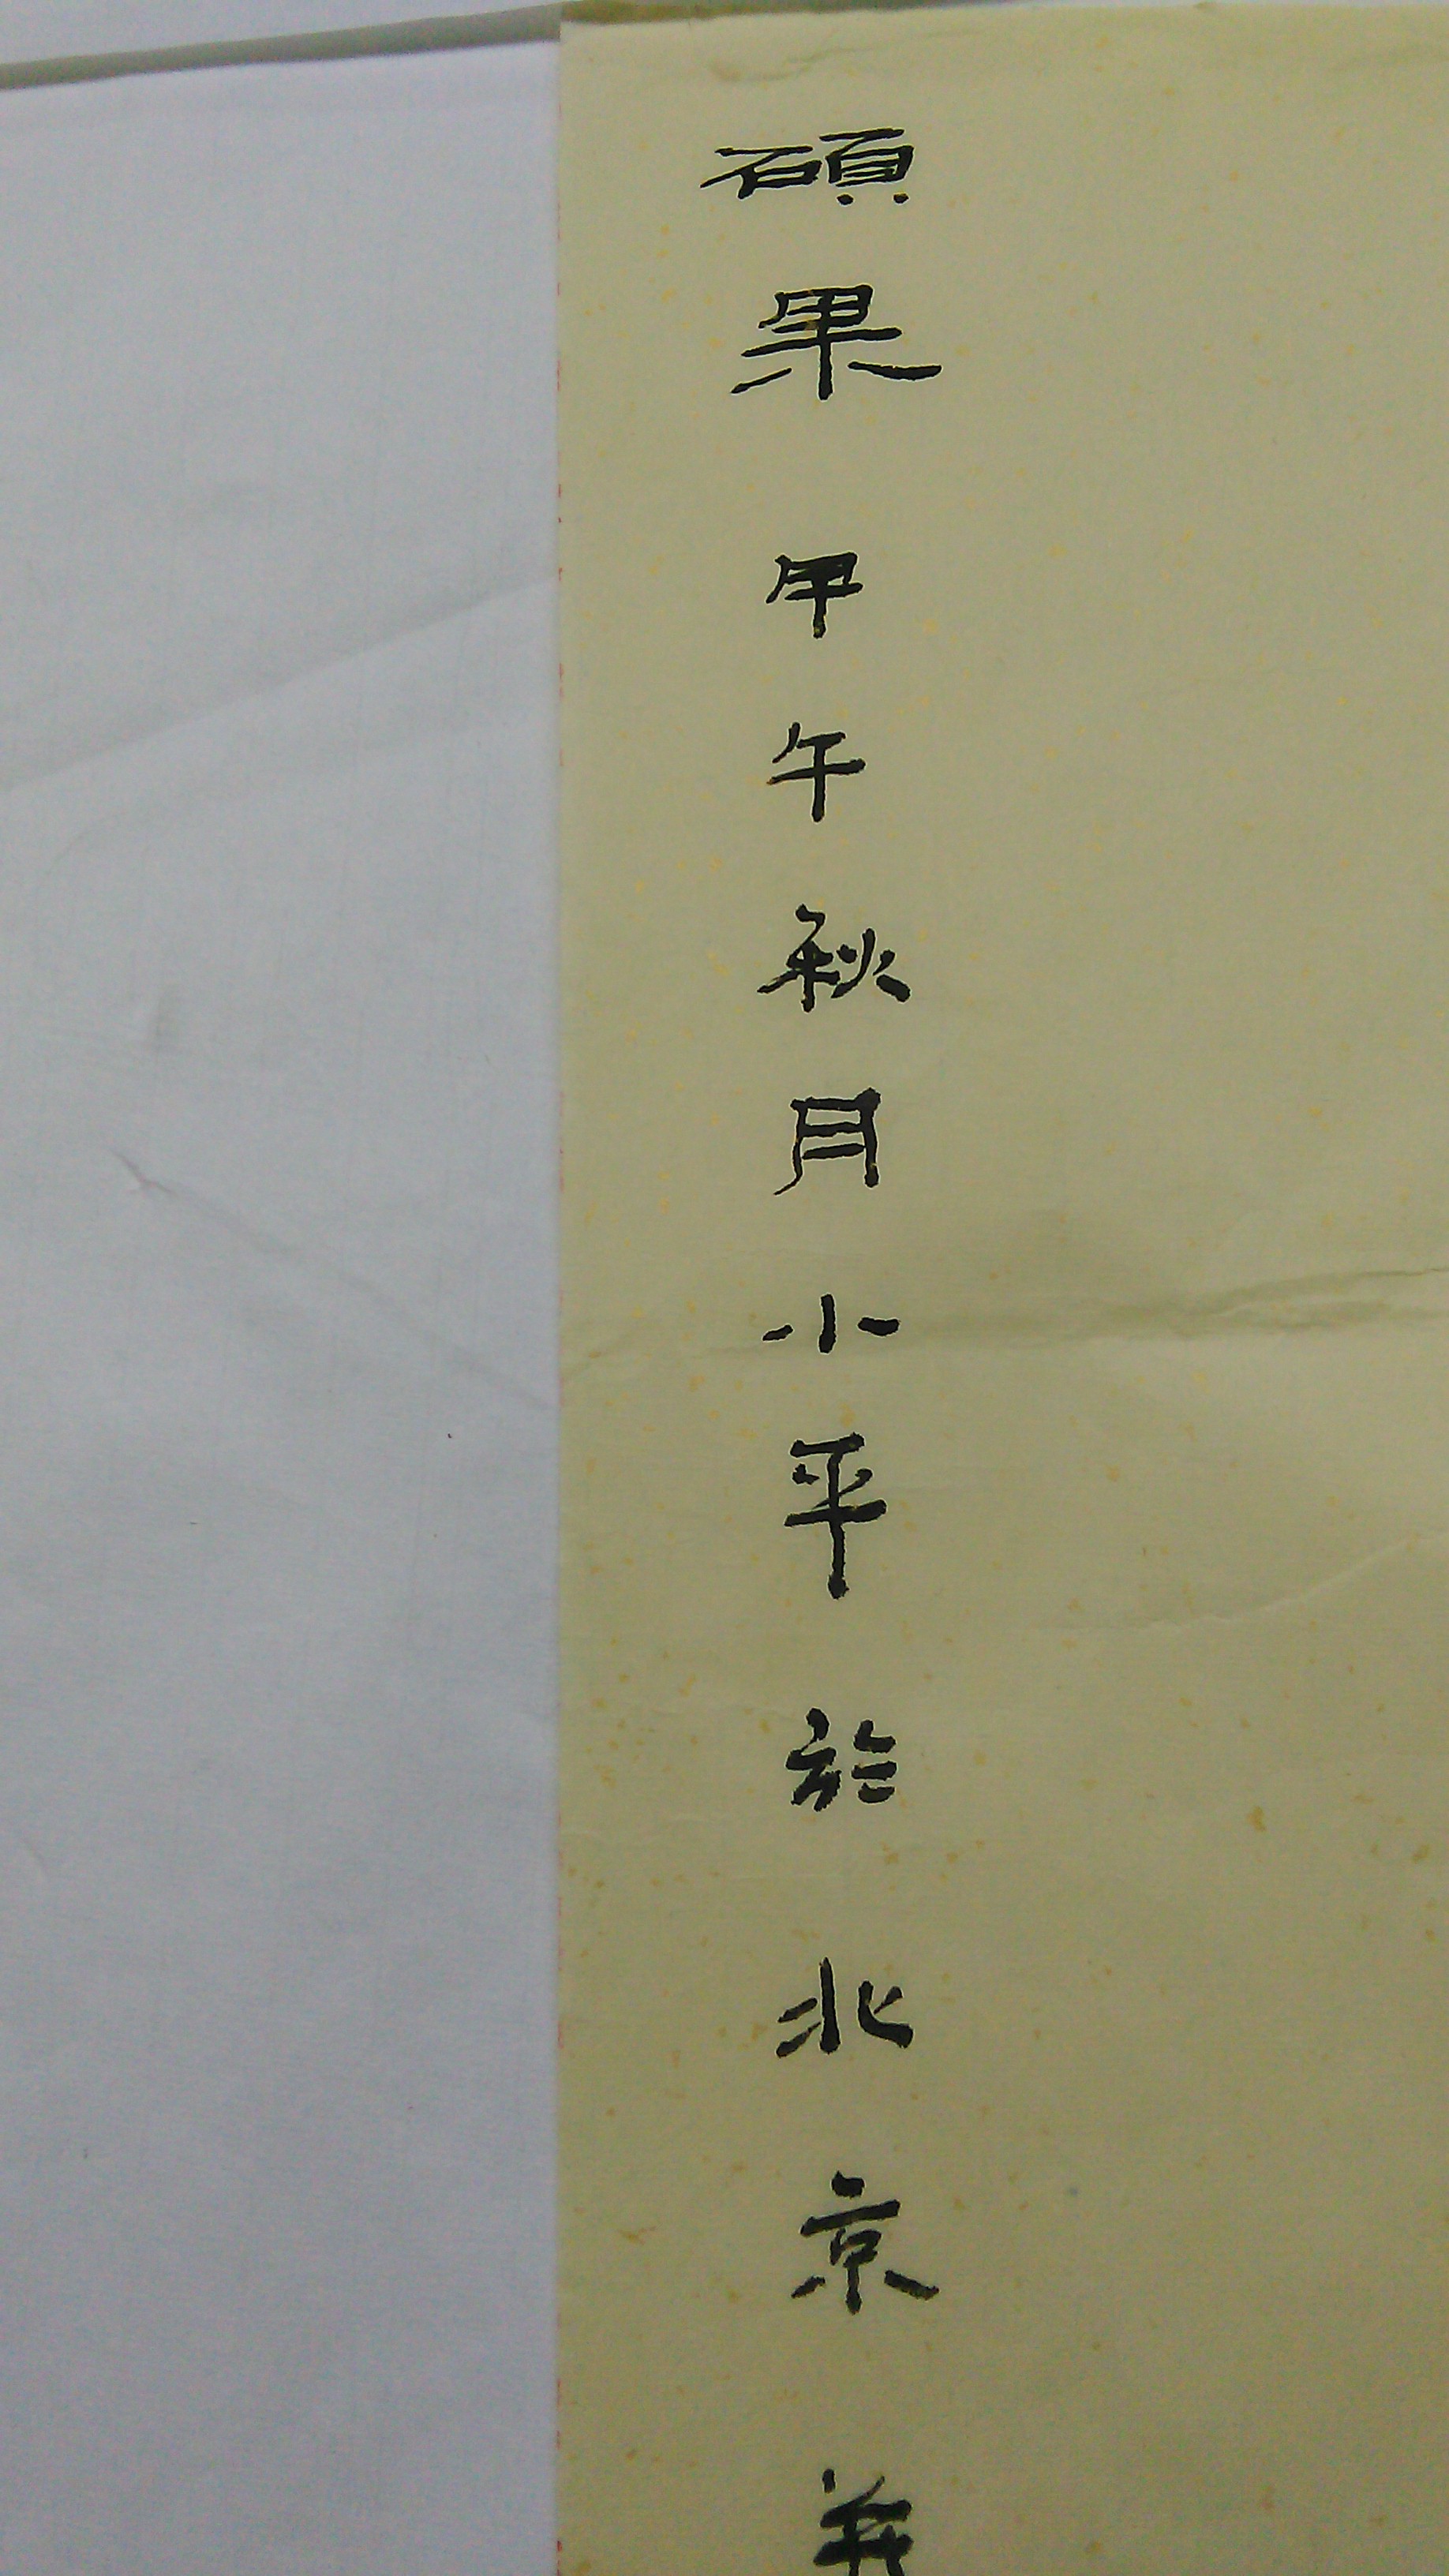 碩果 甲午秋月小平於北京